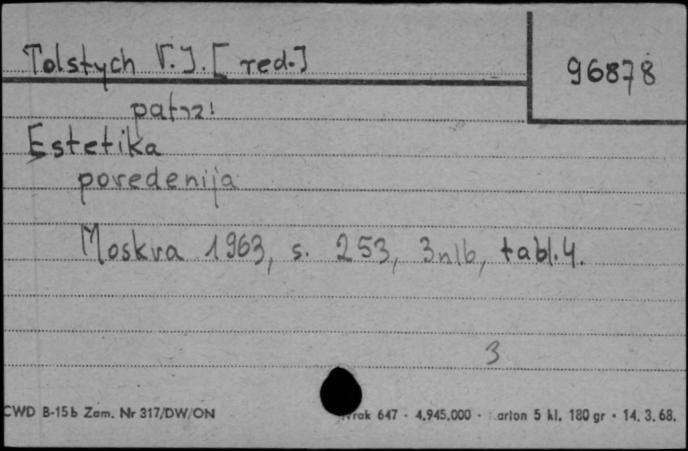 Tolstych V.J. [red.]
96878
patrz!
Estetika
povedenija
Moskva 1963, s. 253, 3nlb, tabl.4.
3
CWD B-15b Zam. Nr 317/DW/ON
647 - 4.945.000 - 5 kl. 180 gr • 14. 3. 68.